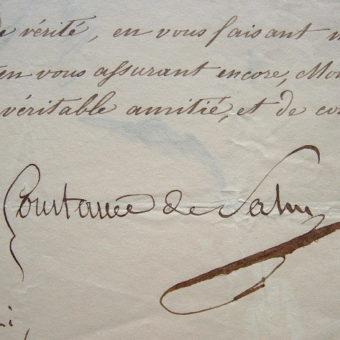 e vérité, en vous faisant
en vous assurant encore, Mo
véritable amitié, et de co
Constance de Salm
i,